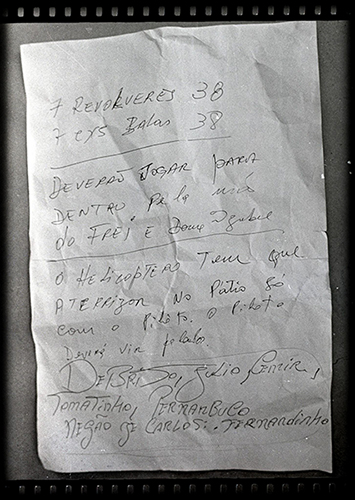 7 REVOLVERES 38
7 cxs Balas 38
DEVERÃO JOGAR PARA
DENTRO Pela
do FREI E Dona Izabel
O HELICOPTERO Tem que
ATERRIZAR No Pátio Só
com o Piloto. O Piloto
Deverá vir pelado.
DEUSRISO, Julio Cemir,
TOMATINHO, PERNAMBUCO
NEGÃO ZE CARLOS. FERNANDINHO